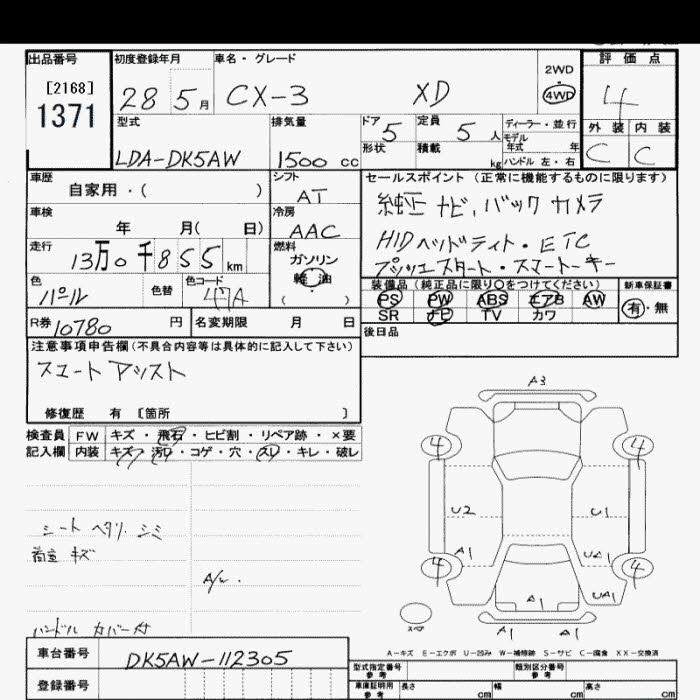 出品番号
[2168]
1371
初度登録年月
28 5 月
車名・グレード
CX-3 XD
2WD
4WD
評価点
4
外装 内装
C C
型式
LDA-DK5AW
排気量
1500 cc
ドア 5
定員 5 人
形状
積載 kg
ディーラー・並行
モデル
年式 年
ハンドル 左・右
車歴
自家用・( )
シフト
AT
車検
年 月( 日)
冷房
AAC
走行
13万0千855 km
燃料
ガソリン
軽油
( )
色
パール
色替
色コード
47A
R券 10780 円
名変期限 月 日
セールスポイント(正常に機能するものに限ります)
純正ナビ、バックカメラ
HIDヘッドライト・ETC
プッシュスタート・スマートキー
装備品(純正品に限り○をつけてください)
PS PW ABS エアB AW
SR ナビ TV カワ
新車保証書
有・無
後日品
注意事項申告欄(不具合内容等は具体的に記入して下さい)
スマートアシスト
修復歴 有 〔箇所 〕
検査員
記入欄
FW キズ・飛石・ヒビ割・リペア跡・×要
内装 キズ・汚れ・コゲ・穴・スレ・キレ・破レ
シート ヘタリ シミ
キズ
A/W.
ハンドル カバー付
A3
4 4
U2 U1
A1 UA1
4 4
A1 UA1
スペア
A1 A1
A-キズ E-エクボ U-凹み W-補修跡 S-サビ C-腐食 XX-交換済
車台番号
DK5AW-112305
登録番号
型式指定番号
参考
類別区分番号
参考
車庫証明用
参考
長さ cm 幅 cm 高さ cm